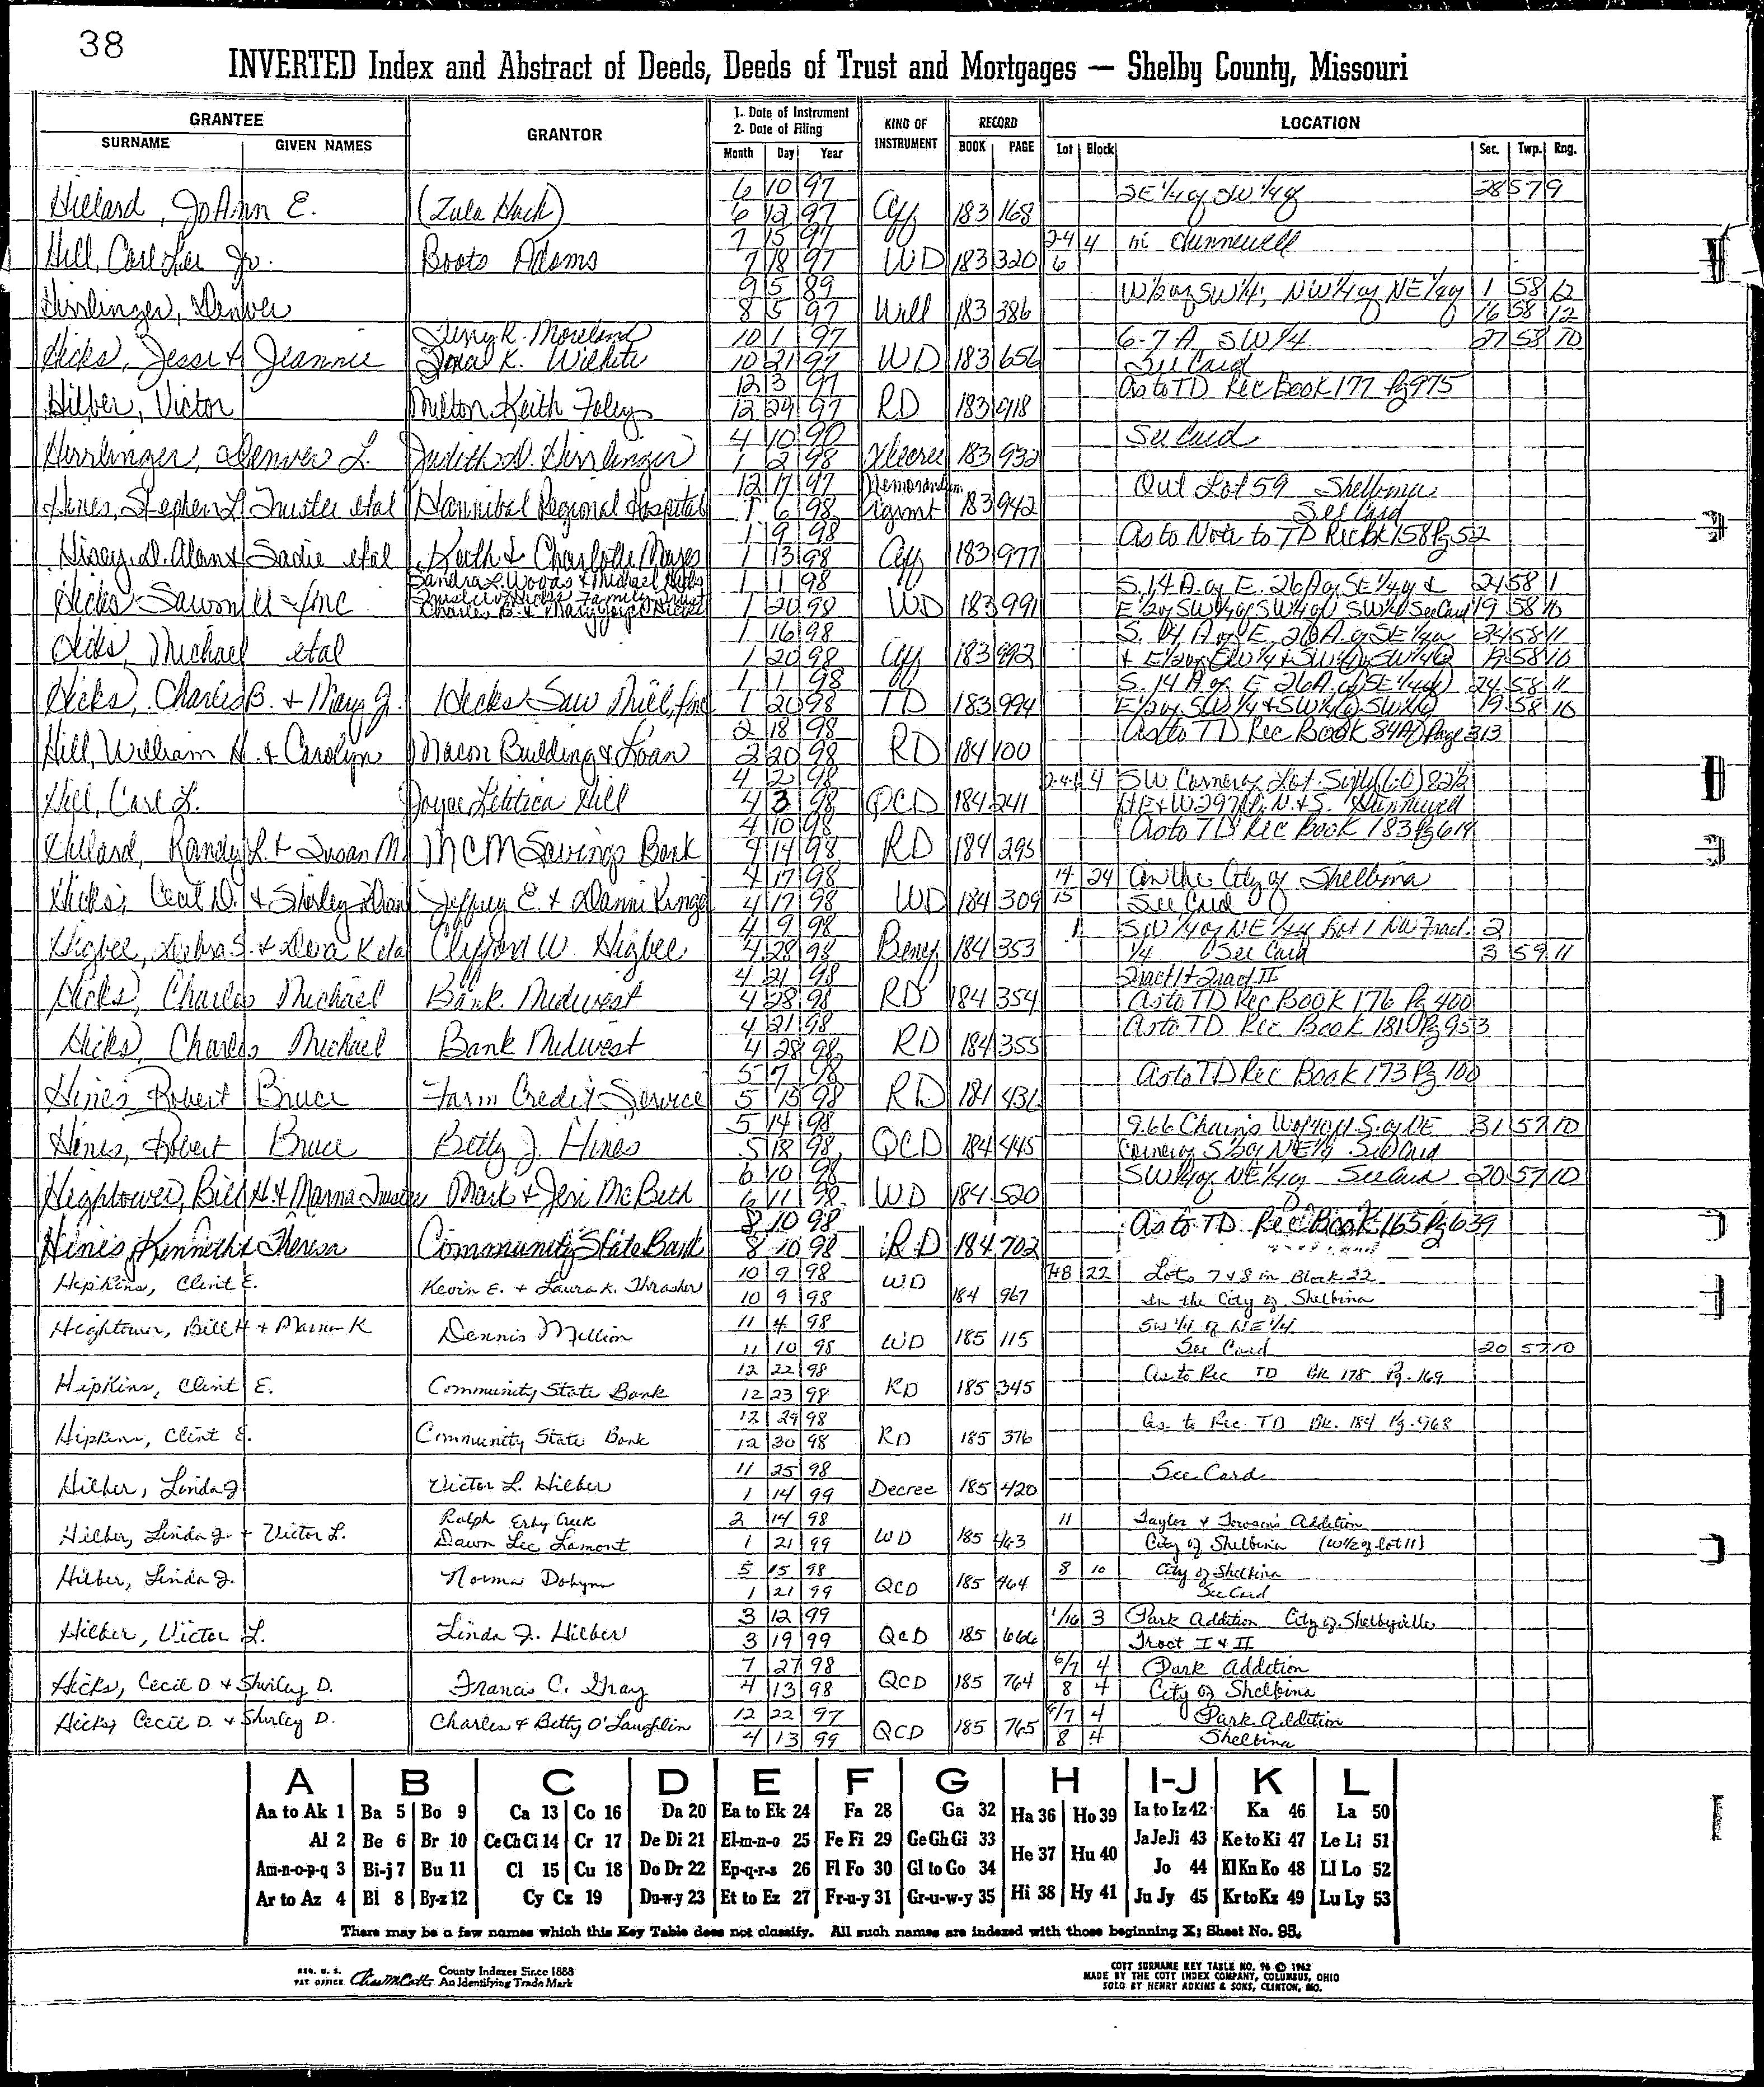 38
INVERTED Index and Abstract of Deeds, Deeds of Trust and Mortgages — Shelby County, Missouri
GRANTEE GRANTOR 1. Date of Instrument 2. Date of Filing KIND OF INSTRUMENT RECORD LOCATION
SURNAME GIVEN NAMES Month Day Year BOOK PAGE Lot Block Sec. Twp. Rng.
6 10 97 SE 1/4 of SW 1/4 of 28 57 9
Hillard, JoAnn E. (Zula Hack) 6 12 97 Aff 183 168
7 15 97 2-4 4 in Hunnewell
Hill, Carl Lee Jr. Boots Adams 7 18 97 WD 183 320 6
9 5 89 W 1/2 of SW 1/4; NW 1/4 of NE 1/4 of 1 58 12
Hirrlinger, Denver 8 5 97 Will 183 386 16 58 12
Terry R. Moreland 10 1 97 6-7 A SW 1/4 27 58 10
Hicks, Jesse & Jeannie K. Wilhite 10 21 97 WD 183 656 See Card
12 3 97 As to TD Rec Book 177 Pg 975
Hilber, Victor Milton Keith Foley 12 29 97 RD 183 918
4 10 90 See Card
Hirrlinger, Denver L. Judith D. Hirrlinger 1 2 98 Decree 183 932
12 17 97 Memorandum Out Lot 59 Shelbina
Hines, Stephen L Trustee etal Hannibal Regional Hospital 1 6 98 Agrmt 183 942 See Card
1 9 98 As to Note to TD Rec Bk 158 Pg 52
D. Alan & Sadie etal Keith & Charlotte Mayes 1 13 98 Aff 183 977
Sandra L. Woods & Michael Hicks 1 1 98 S. 14 A of E. 26 A of SE 1/4 of & 24 58 1
Hicks Sawmill Inc Trustees Hicks Family Trust Charles B. & Mary Joyce Hicks 1 20 98 WD 183 991 E 1/2 of SW 1/4 of SW 1/4 of SW 1/4 See Card 19 58 10
1 16 98 S. 14 A of E. 26 A of SE 1/4 of 24 58 11
Hicks, Michael etal 1 20 98 Aff 183 992 & E 1/2 of SW 1/4 & SW 1/4 of SW 1/4 of 19 58 10
1 1 98 S. 14 A of E 26 A of SE 1/4 of 24 58 11
Hicks, Charles B. & Mary J. Hicks Saw Mill, Inc 1 20 98 TD 183 994 E 1/2 of SW 1/4 & SW 1/4 of SW 1/4 of 19 58 10
2 18 98 As to TD Rec Book 84A Page 313
Hill, William H. & Carolyn Macon Building & Loan 2 20 98 RD 184 100
4 2 98 2-4-6 4 SW Corner of Lot Six (6) 82 1/2
Hill, Carl L. Joyce Letitica Hill 4 3 98 QCD 184 241 ft E & W 297 ft N. & S. Hunnewell
4 10 98 As to TD Rec Book 183 Pg 619
Hillard, Randy L. & Susan M. MCM Savings Bank 4 14 98 RD 184 295
4 17 98 14 24 In the City of Shelbina
Hicks, Cecil D. & Shirley Dian Jeffrey E. & Danni Kinge 4 17 98 WD 184 309 15 See Card
4 9 98 1 SW 1/4 of NE 1/4 Lot 1 NW Fract. 2
Higbee, Debra S. & Deva K etal Clifford W. Higbee 4 28 98 Benef 184 353 1/4 See Card 3 59 11
4 21 98 Tract I & Tract II
Hicks, Charles Michael Bank Midwest 4 28 98 RD 184 354 As to TD Rec Book 176 Pg 400
4 21 98 As to TD Rec Book 181 Pg 953
Hicks, Charles Michael Bank Midwest 4 28 98 RD 184 355
5 7 98 As to TD Rec Book 173 Pg 100
Hines, Robert Bruce Farm Credit Service 5 15 98 RD 184 436
5 14 98 9.66 Chains W of 40 ft S. of NE 31 57 10
Hines, Robert Bruce Betty J. Hines 5 18 98 QCD 184 445 Corner of S 1/2 of NE 1/4 See Card
6 10 98 SW 1/4 of NE 1/4 of See Card 20 57 10
Hightower, Bill H. & Marna Trustees Mark & Jeri McBeth 6 11 98 WD 184 520
8 10 98 As to TD Rec Book 165 Pg 639
Hines, Kenneth & Theresa Community State Bank 8 10 98 RD 184 702
10 9 98 7+8 22 Lots 7 & 8 in Block 22
Hipkins, Clint E. Kevin E. & Laura K. Thrasher 10 9 98 WD 184 967 In the City of Shelbina
11 4 98 SW 1/4 of NE 1/4
Hightower, Bill H & Marna K Dennis Million 11 10 98 WD 185 115 See Card 20 57 10
12 22 98 As to Rec TD Bk 178 Pg. 169
Hipkins, Clint E. Community State Bank 12 23 98 RD 185 345
12 29 98 As to Rec. TD Bk. 184 Pg. 968
Hipkins, Clint E. Community State Bank 12 30 98 RD 185 376
11 25 98 See Card
Hilber, Linda J Victor L. Hilber 1 14 99 Decree 185 420
Ralph Erby Creek 2 14 98 11 Taylor & Towson's Addition
Hilber, Linda J. & Victor L. Dawn Lee Lamont 1 21 99 WD 185 463 City of Shelbina (W 1/2 of lot 11)
5 15 98 8 10 City of Shelbina
Hilber, Linda J. Norma Dobyns 1 21 99 QCD 185 464 See Card
3 12 99 1/16 3 Park Addition City of Shelbyville
Hilber, Victor L. Linda J. Hilber 3 19 99 QCD 185 666 Tract I & II
7 27 98 6/7 4 Park Addition
Hicks, Cecil D & Shirley D. Francis C. Gray 4 13 98 QCD 185 764 8 4 City of Shelbina
12 22 97 6/7 4 Park Addition
Hicks, Cecil D. & Shirley D. Charles & Betty O'Laughlin 4 13 99 QCD 185 765 8 4 Shelbina
A B C D E F G H I-J K L
Aa to Ak 1 Ba 5 Bo 9 Ca 13 Co 16 Da 20 Ea to Ek 24 Fa 28 Ga 32 Ha 36 Ho 39 Ia to Iz 42 Ka 46 La 50
Al 2 Be 6 Br 10 Ce Ch Ci 14 Cr 17 De Di 21 El-m-n-o 25 Fe Fi 29 Ge Gh Gi 33 He 37 Hu 40 Ja Je Ji 43 Ke to Ki 47 Le Li 51
Am-n-o-p-q 3 Bi-j 7 Bu 11 Cl 15 Cu 18 Do Dr 22 Ep-q-r-s 26 Fl Fo 30 Gl to Go 34 Jo 44 Kl Kn Ko 48 Ll Lo 52
Ar to Az 4 Bl 8 By-z 12 Cy Cz 19 Du-w-y 23 Et to Ez 27 Fr-u-y 31 Gr-u-w-y 35 Hi 38 Hy 41 Ju Jy 45 Kr to Kz 49 Lu Ly 53
There may be a few names which this Key Table does not classify. All such names are indexed with those beginning X; Sheet No. 95.
REG. U. S. PAT OFFICE Chas M Cott County Indexes Since 1888 An Identifying Trade Mark
COTT SURNAME KEY TABLE NO. 96 © 1962
MADE BY THE COTT INDEX COMPANY, COLUMBUS, OHIO
SOLD BY HENRY ADKINS & SONS, CLINTON, MO.